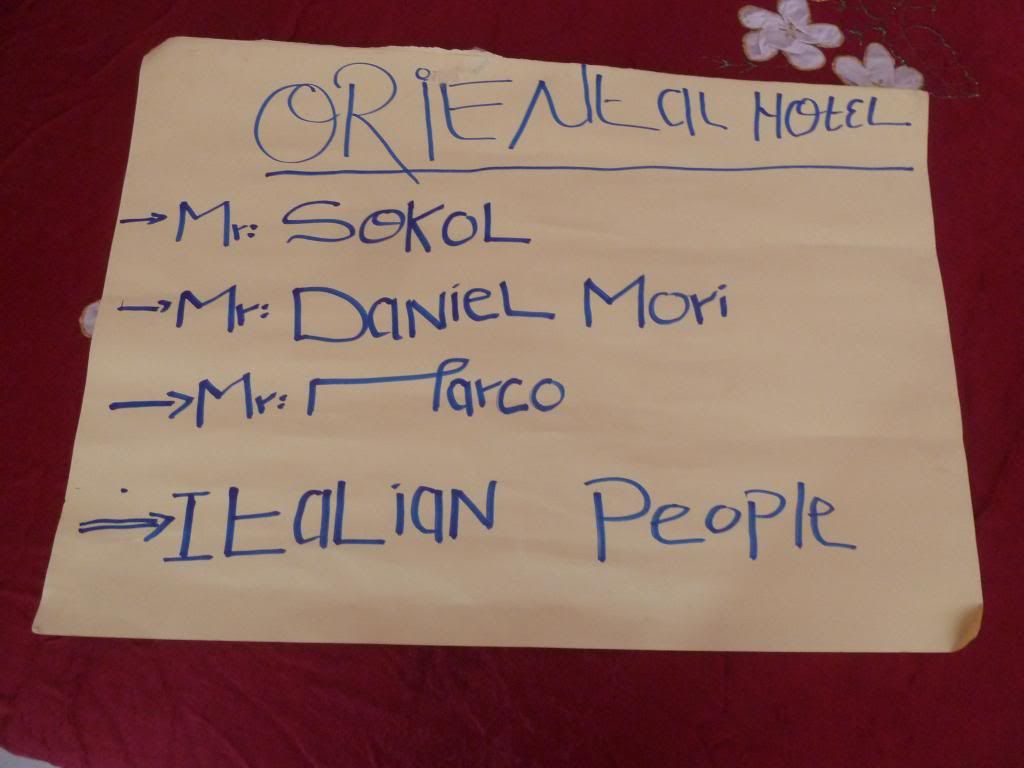 ORiENtaL HOtEL
→ Mr: SOKOL
→ Mr: DaNiel Mori
→ Mr: Marco
⇒ ItaLiaN People